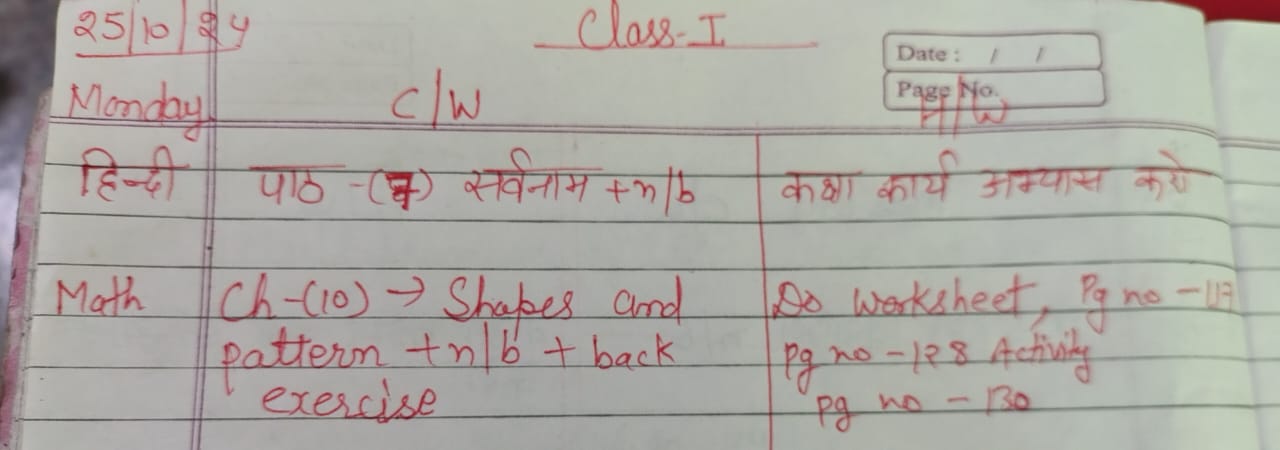 25/10/24 Class-I
Date : / /
Page No.
Monday C/W H/W
हिन्दी पाठ -() सर्वनाम +n/b कक्षा कार्य अभ्यास करो
Math Ch-(10) → Shapes and Do Worksheet, Pg no -117
pattern +n/b + back pg no -128 Activity
exercise pg no - 130